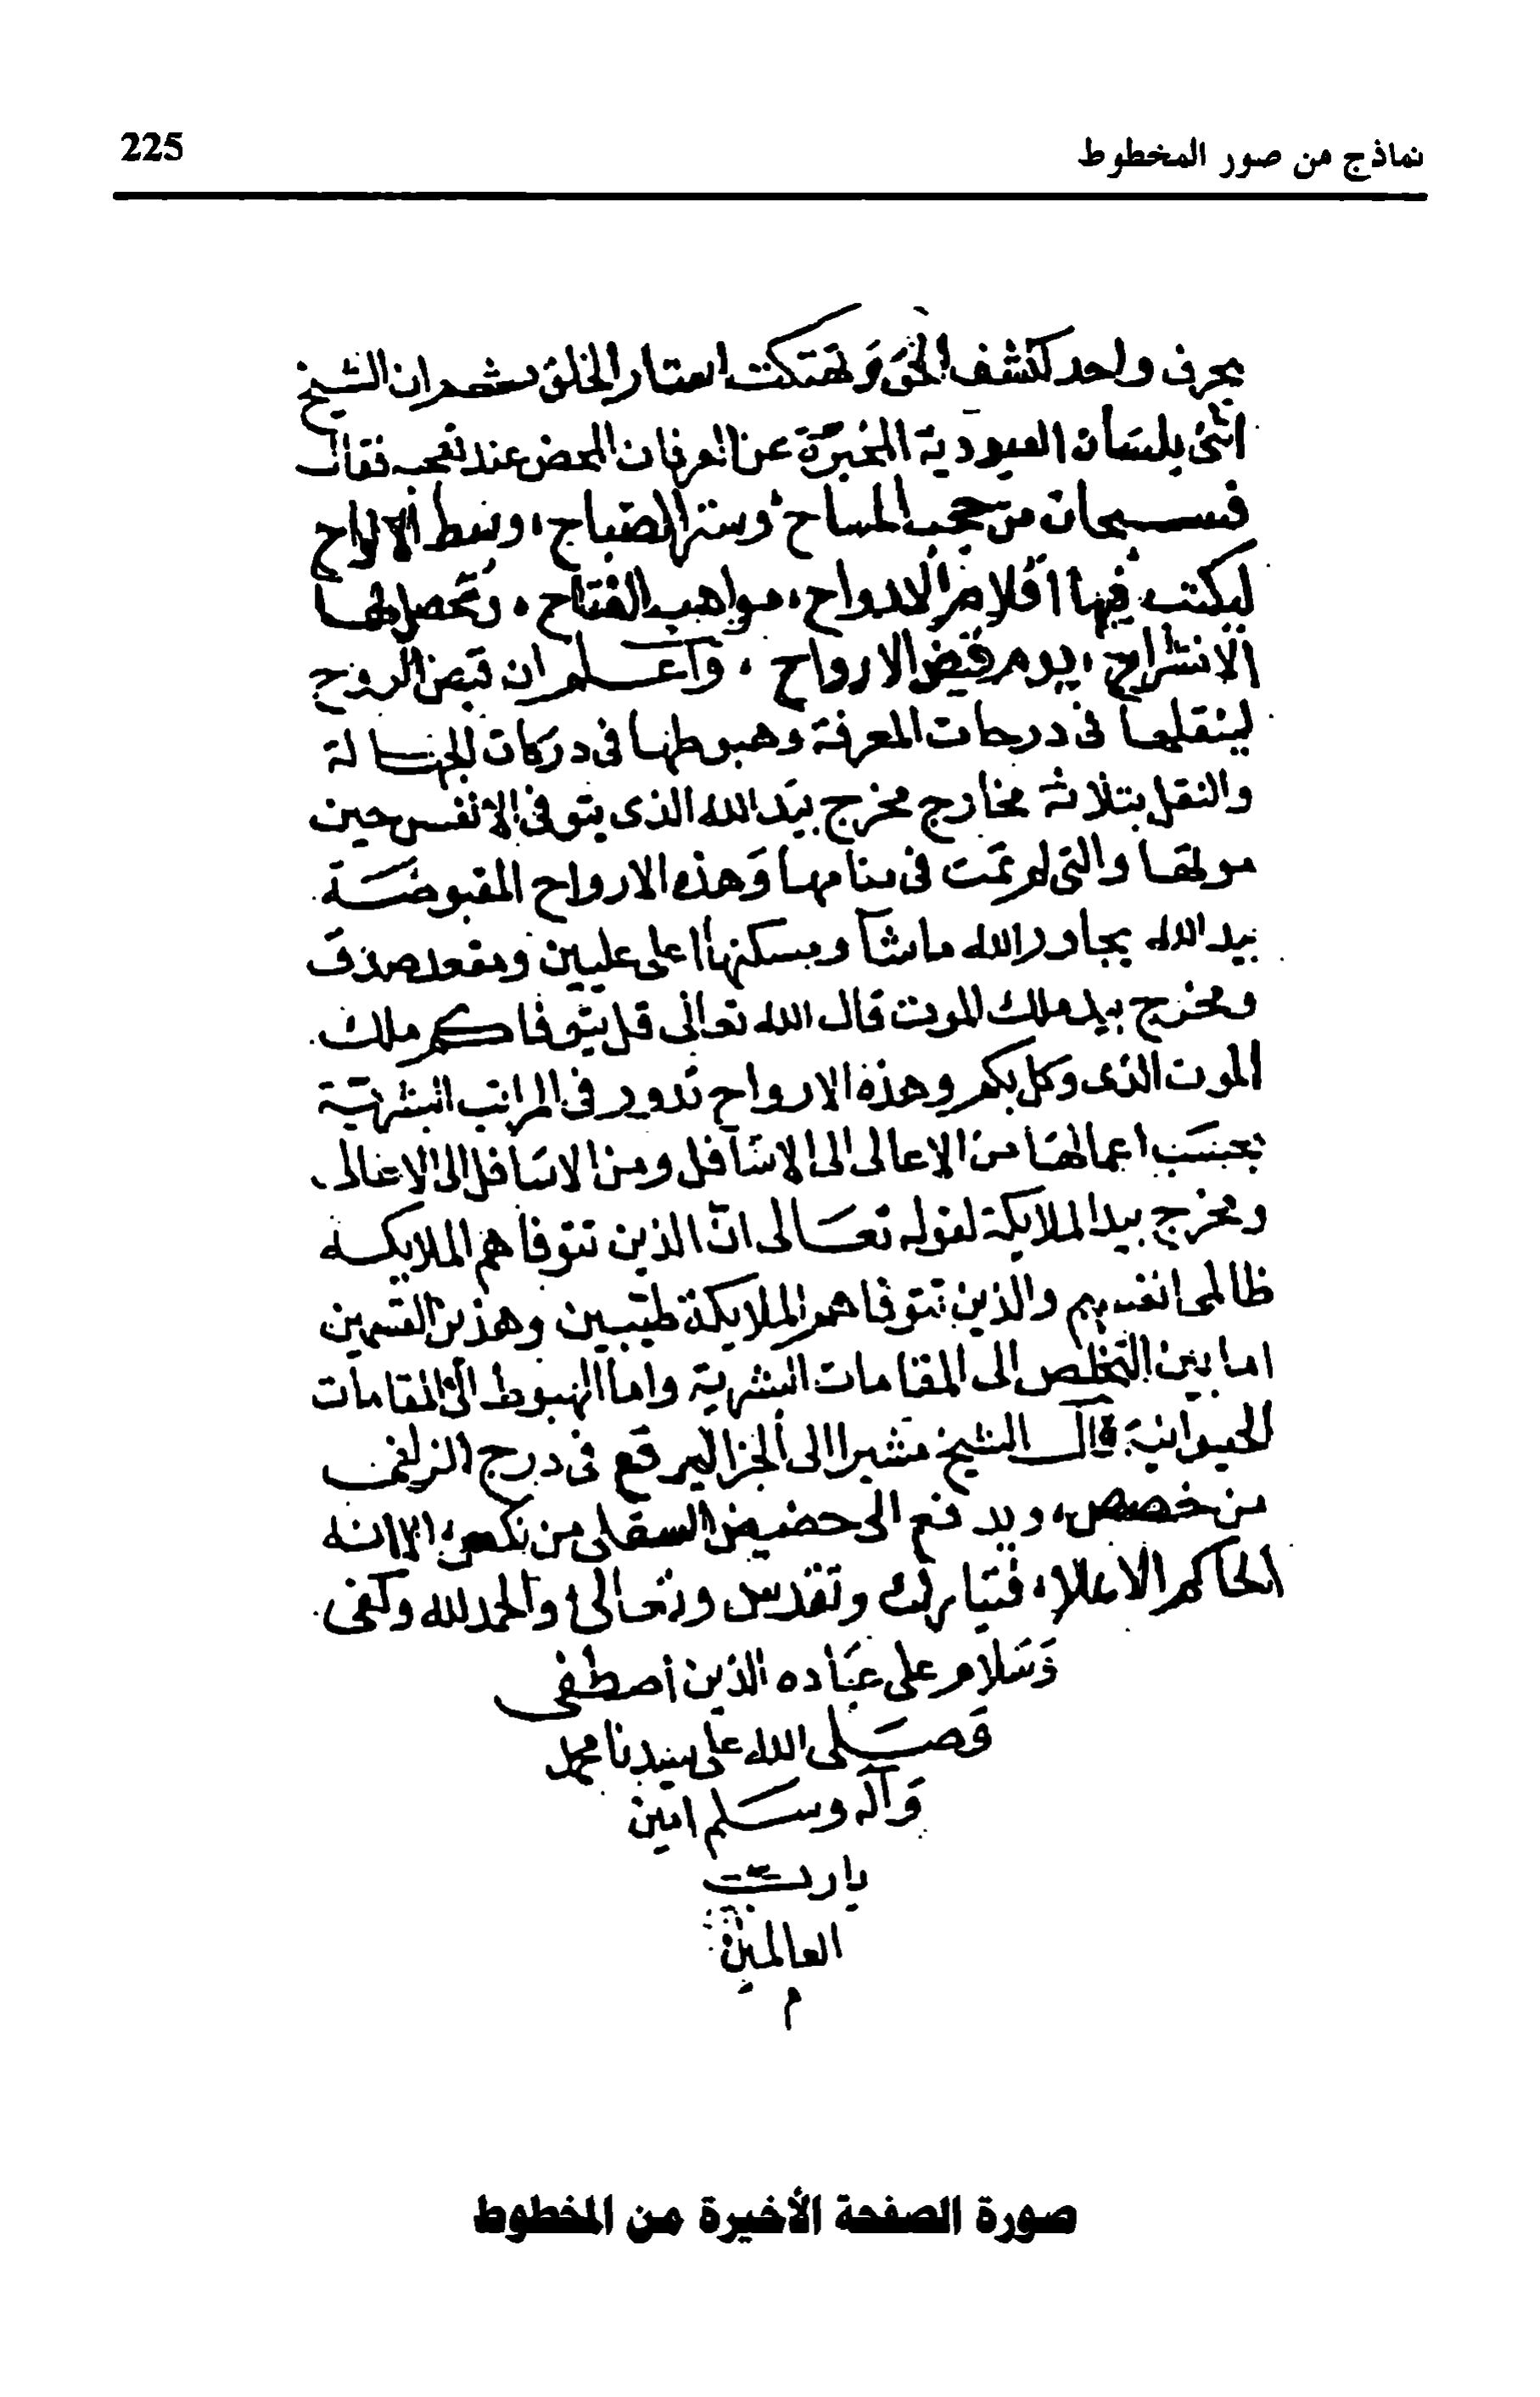 نماذج من صور المخطوط
225
بحرف واحد لكشف الحق وتهتكت استار الخلق ثم ان الشيخ
اثنى بلسان العبودية المخبرة عن العرفان المحض عند فقال
فسبحان من حجب المساح وستر الصباح، وبسط الالواح
ليكتب فيها اقلام الارواح، مواهب الفتاح، وتحصل لها
الانشراح، يوم قبض الارواح، واعلم ان قبض الروح
لينقلها فى درجات المعرفة وهبوطها فى دركات الجهالة
والنقل بثلاثة مخارج مخرج بيد الله الذى يتوفى الانفس حين
موتها والتى لم تمت فى منامها وهذه الارواح المقبوضة
بيد الله يجاور الله ماشا ويسكنها اعلى عليين ومقعد صدق
ومخرج بيد ملك الموت قال الله تعالى قل يتوفاكم ملك
الموت الذى وكل بكم وهذه الارواح تدور فى المراتب البشرية
بحسب اعمالها من الاعالى الى الاسافل ومن الاسافل الى الاعالى
ومخرج بيد الملايكة لقوله تعالى ان الذين تتوفاهم الملايكه
ظالمى انفسهم والذين تتوفاهم الملايكة طيبين وهذين القسمين
اما بين التخلص الى المقامات البشرية واما الهبوط الى المقامات
الحيوانية قال الشيخ مشيرا الى الجزا ليرقع فى درج الزلفى
من خصص، ويدفع الى حضيض السفلى من نكص، الا انه
الحاكم الاعلا، فتبارك وتقدس وتعالى والحمد لله وكفى
وسلام على عباده الذين اصطفى
وصلى الله على سيدنا محمد
وآله وسلم امين
يا رب
العالمين
م
صورة الصفحة الأخيرة من المخطوط